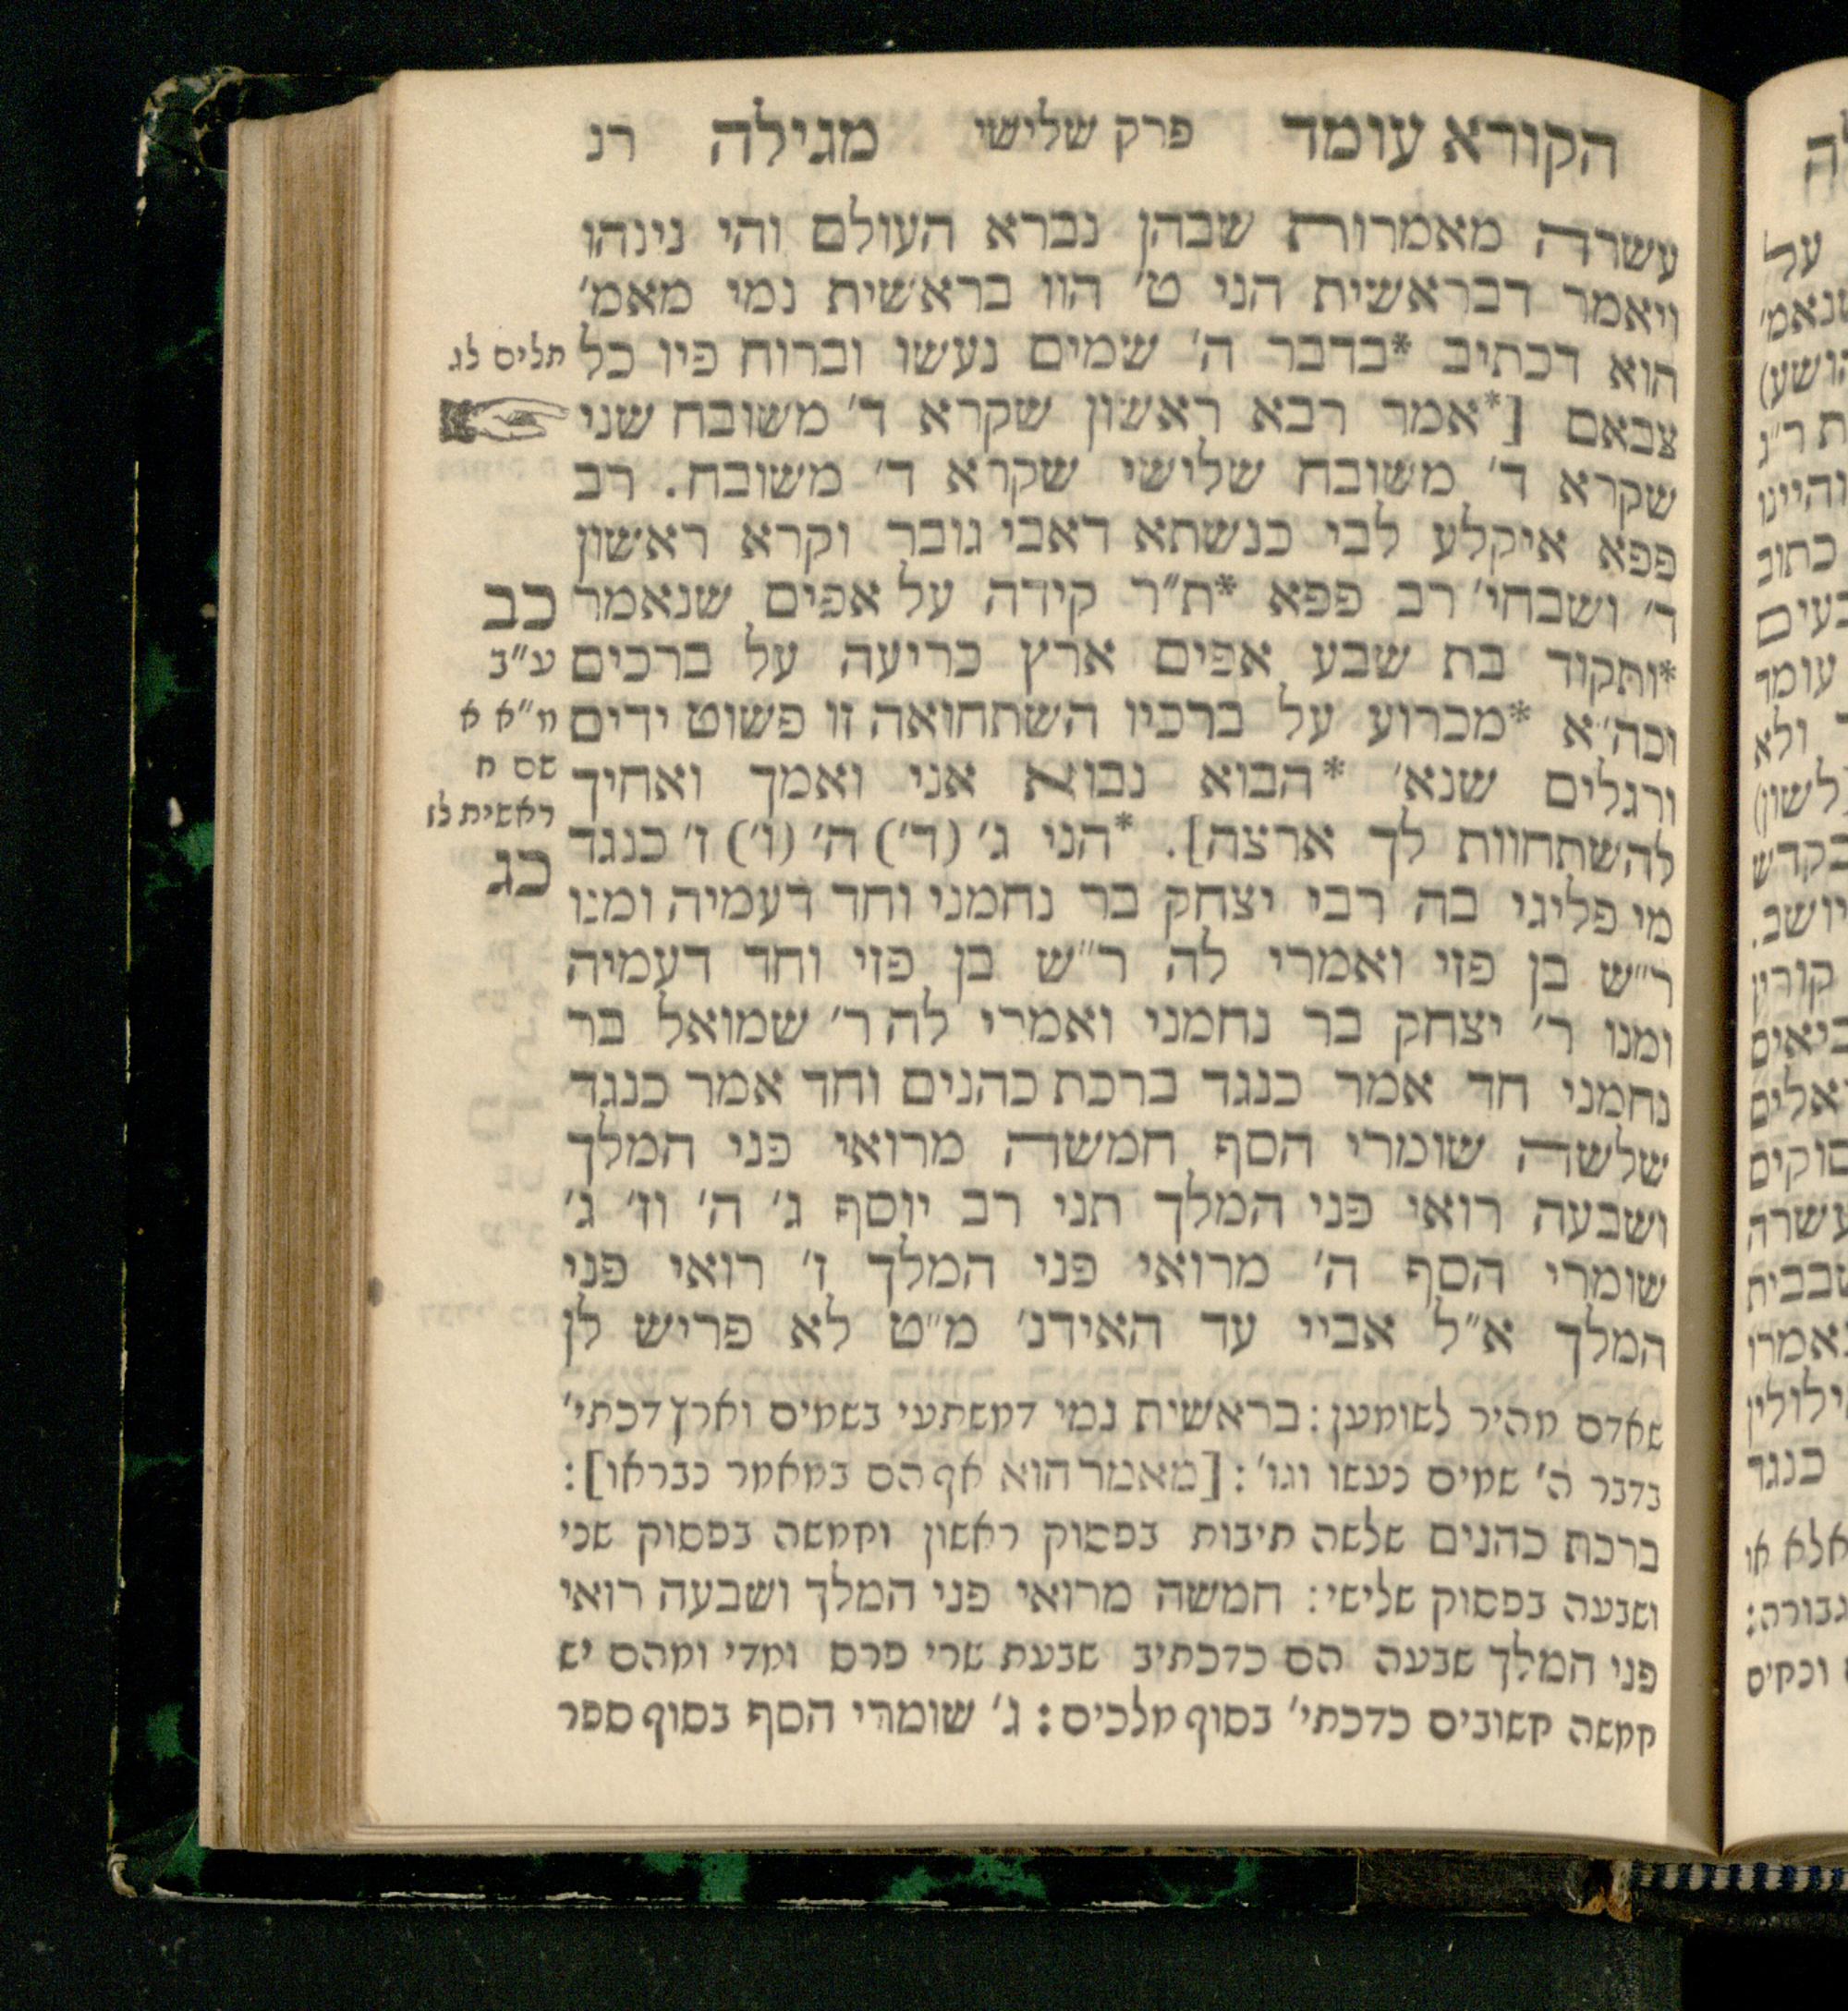 הקורא עומד פרק שלישי מגילה רנ
עשרה מאמרות שבהן נברא העולם והי נינהו
ויאמר דבראשית הני ט׳ הוו בראשית נמי מאמ׳
הוא דכתיב *בדבר ה׳ שמים נעשו וברוח פיו כל
תלים לג
צבאם [*אמר רבא ראשון שקרא ד׳ משובח שני
שקרא ד׳ משובח שלישי שקרא ד׳ משובח. רב
פפא איקלע לבי כנשתא דאבי גובר וקרא ראשון
ד׳ ושבחי׳ רב פפא *ת״ר קידה על אפים שנאמר
כב
*ותקוד בת שבע אפים ארץ כריעה על ברכים
ע״ב
וכה״א *מכרוע על ברכיו השתחואה זו פשוט ידים
מ״א א
ורגלים שנא׳ *הבוא נבוא אני ואמך ואחיך
שם ח
להשתחוות לך ארצה]. *הני ג׳ (ד׳) ה׳ (ו׳) ז׳ כנגד
ראשית לז
כג
מי פליגי בה רבי יצחק בר נחמני וחד דעמיה ומנו
ר״ש בן פזי ואמרי לה ר״ש בן פזי וחד דעמיה
ומנו ר׳ יצחק בר נחמני ואמרי לה ר׳ שמואל בר
נחמני חד אמר כנגד ברכת כהנים וחד אמר כנגד
שלשה שומרי הסף חמשה מרואי פני המלך
ושבעה רואי פני המלך תני רב יוסף ג׳ ה׳ וז׳ ג׳
שומרי הסף ה׳ מרואי פני המלך ז׳ רואי פני
המלך א״ל אביי עד האידנ׳ מ״ט לא פריש לן
שאדם מהיר לשומען: בראשית נמי דמשתעי בשמים וארץ דכתי׳
בדבר ה׳ שמים נעשו וגו׳: [מאמר הוא אף הם במאמר נבראו]:
ברכת כהנים שלשה תיבות בפסוק ראשון וחמשה בפסוק שני
ושבעה בפסוק שלישי: חמשה מרואי פני המלך ושבעה רואי
פני המלך שבעה הם כדכתיב שבעת שרי פרס ומדי ומהם יש
חמשה חשובים כדכתי׳ בסוף מלכים: ג׳ שומרי הסף בסוף ספר